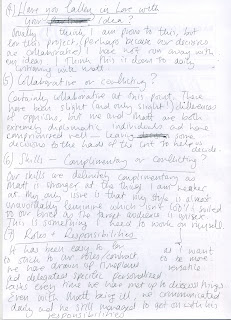 ④ Have you fallen in Love with
your Idea?
Usually I think I am prone to this, but
for this project, perhaps because our decisions
are collaborative I have not run away with
any ideas. I think this is down to
with Matt.
⑤ Collaborative or conflicting?
Certainly collaborative at this point. There
have been slight (and only slight!) differences
of opinions, but me and Matt are both
extremely diplomatic individuals and have
compromised well – leaving some
decisions to the hands of the to help us
decide.
⑥ Skills – Complimentary or conflicting?
Our skills are definitely complimentary as
Matt is stronger at the things I am weaker
at. My only issue is that my style is almost
unavoidably feminine which isn't 100% suited
to our brief as the target audience is
This is something I need to work on myself,
⑦ Roles & Responsibilities as I want
It has been easy to far to be more
to stick to our roles/contract versatile.
we have drawn up timeplans
and delegated specific personalised
tasks every time we have met up to discuss things
Even with Matt being ill, we communicated
daily and he still managed to get on with his
responsibilities.